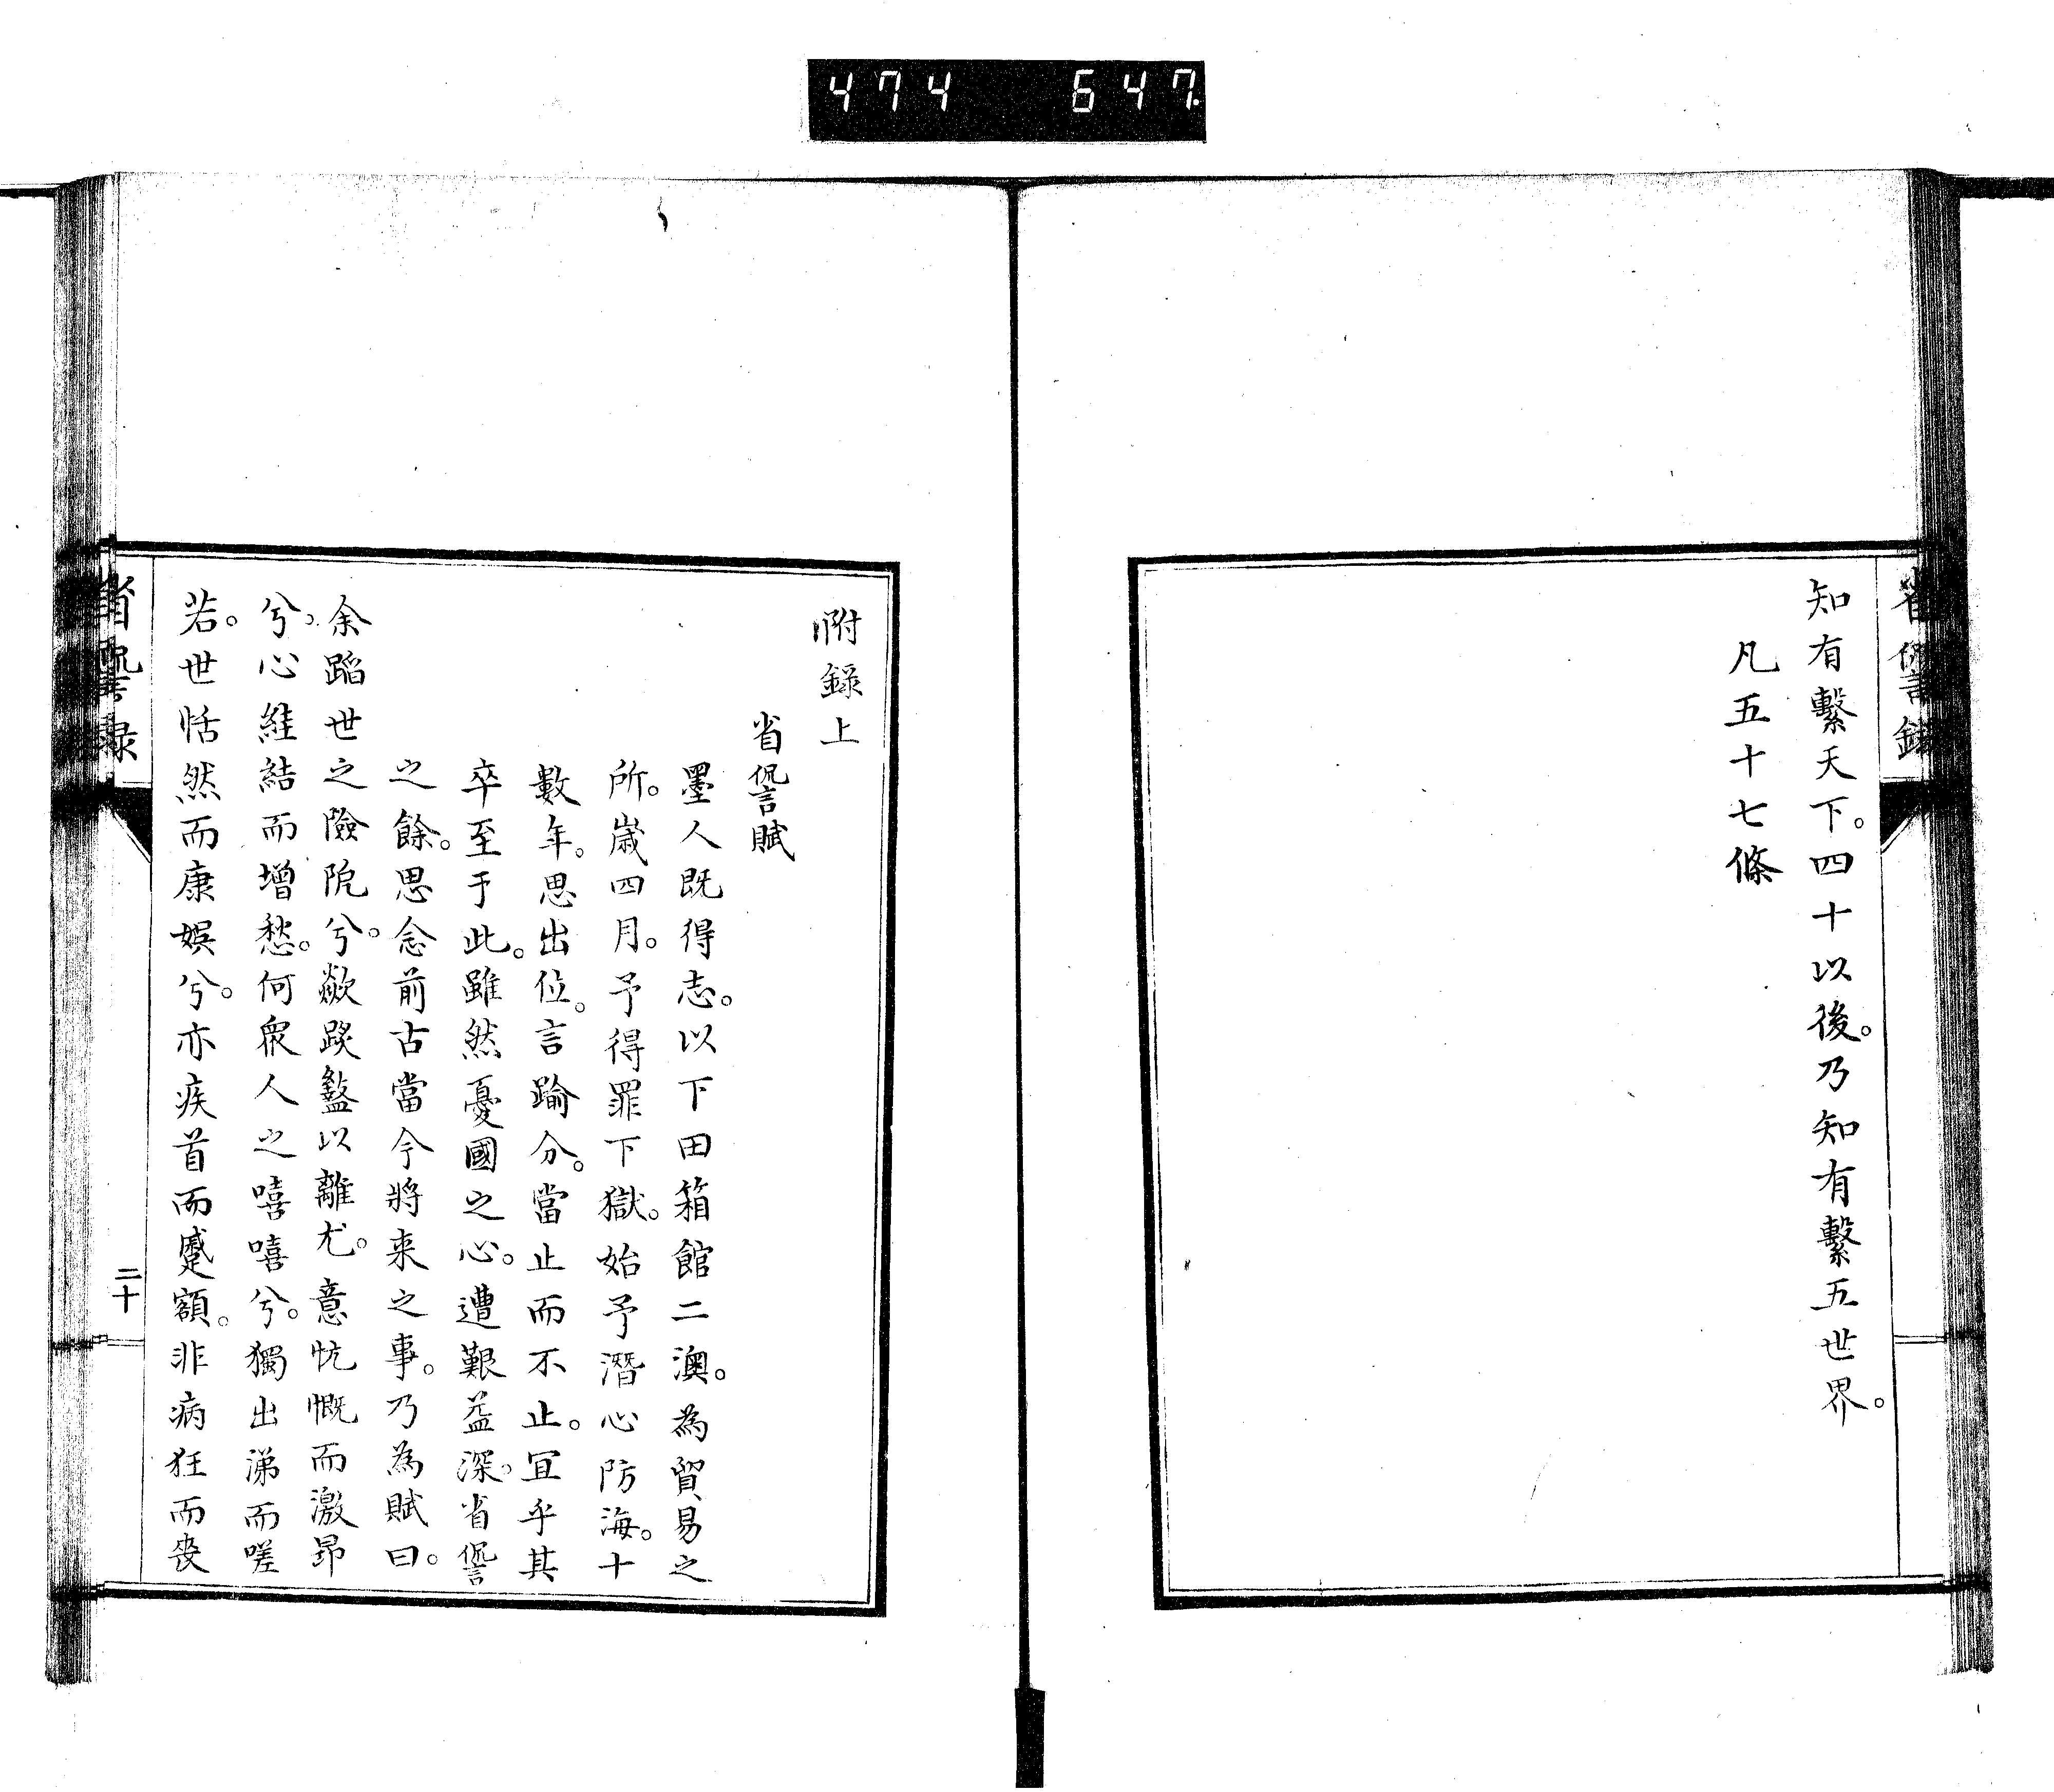 474 647.
省諐錄
知有繫天下。四十以後。乃知有繫五世界。
凡五十七條
附錄上
省諐賦
墨人既得志。以下田箱館二澳。為貿易之
所。歲四月。予得罪下獄。始予潛心防海。十
數年。思出位。言踰分。當止而不止。宜乎其
卒至于此。雖然憂國之心。遭艱益深。省諐
之餘。思念前古當今將來之事。乃為賦曰。
余蹈世之險阨兮。歘踜盭以離尤。意忼慨而激昂
兮。心絓結而增愁。何衆人之嘻嘻兮。獨出涕而嗟
若。世恬然而康娛兮。亦疾首而蹙額。非病狂而喪
省諐錄
二十